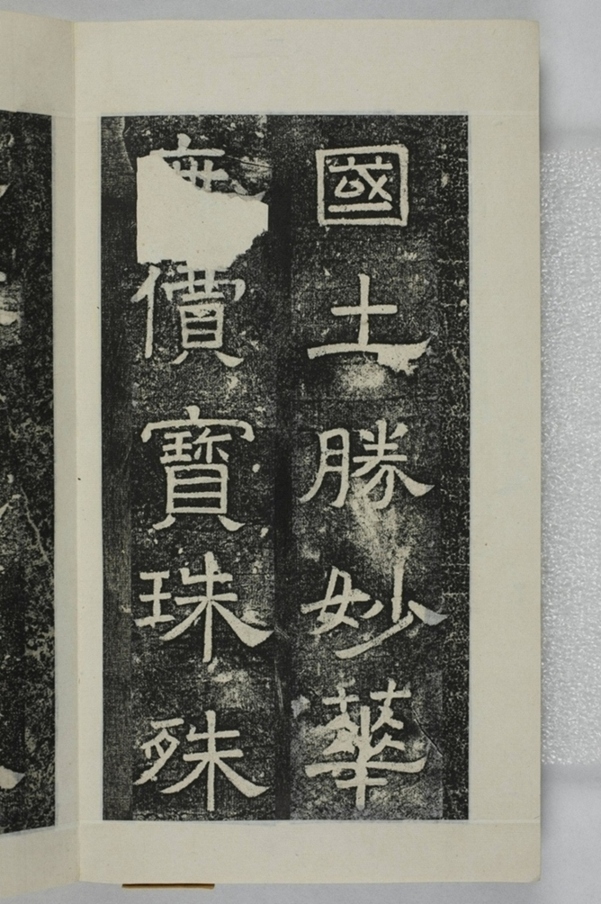 國土勝妙華
無價寶珠殊